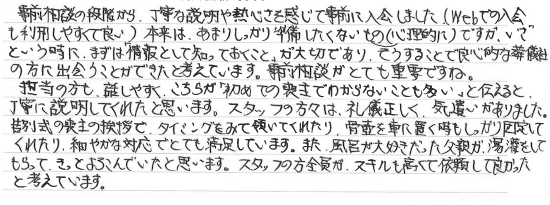 事前相談の段階から、丁寧な説明や熱心さを感じて事前に入会しました(Webでの入会
も利用しやすくて良い)本来は、あまりしっかり準備したくないもの(心理的に)ですが、いざ
という時に、まずは情報として知っておくこと、が大切であり、そうすることで良心的な葬儀社
の方に出会うことができたと考えています。事前相談がとても重要ですね。
担当の方も、話しやすく、こちらが「初めての喪主でわからないことも多い」と伝えると、
丁寧に説明してくれたと思います。スタッフの方々は、礼儀正しく、気遣いがありました。
告別式の喪主の挨拶で、タイミングをみて頷いてくれたり、骨壺を車に置く時もしっかり固定して
くれたり、細やかな対応でとても満足しています。また、風呂が大好きだった父親が、湯灌をして
もらって、きっとよろこんでいたと思います。スタッフの方全員が、スキルも高くて依頼して良かった
と考えています。